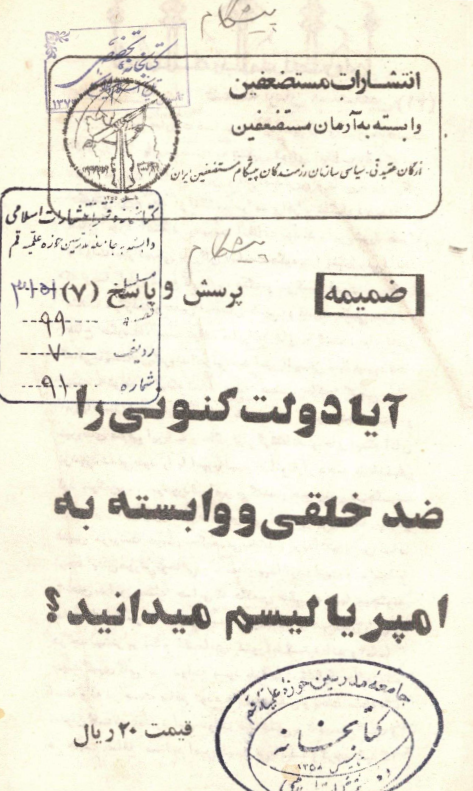 پیشگام
کتابخانه تخصصی
۱۳۷۴
انتشارات مستضعفین
وابسته به آرمان مستضعفین
ارگان عقیدتی، سیاسی سازمان رزمندگان پیشگام مستضعفین ایران
کتابخانه دفتر انتشارات اسلامی
وابسته به جامعه مدرسین حوزه علمیه قم
پیشگام
ضمیمه
پرسش و پاسخ (۷)
۹۹
ردیف ۷
شماره ۹۱
آیا دولت کنونی را
ضد خلقی و وابسته به
امپریالیسم میدانید؟
قیمت ۲۰ ریال
جامعه مدرسین حوزه علمیه قم
کتابخانه
تاسیس ۱۳۵۸